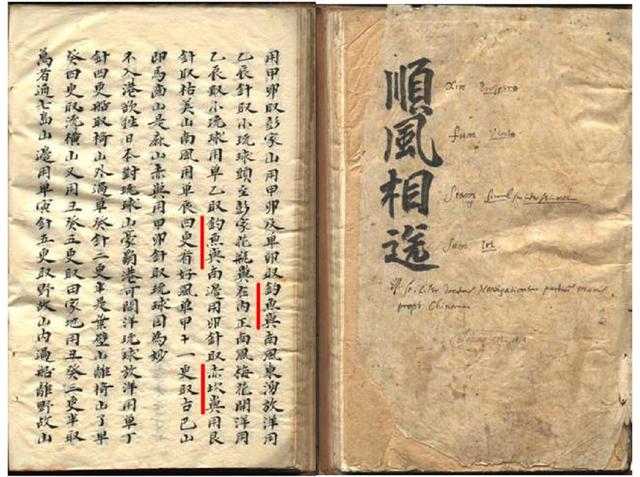 用甲卯取彭家山用甲卯及單卯取釣魚嶼南風東湧放洋用
乙辰針取小琉球頭至彭家花瓶嶼在內正南風梅花開洋用
乙辰取小琉球用單乙取釣魚嶼南邊用卯針取赤坎嶼用艮
針取枯美山南風用單辰四更看好風單甲十一更取古巴山
即馬齒山是麻山赤嶼用甲卯針取琉球國為妙
不入港欲往日本對琉球山豪霸港可開洋琉球放洋用單丁
針四更船取椅山外過單癸針二更半是葉壁山離椅山了單
癸四更取流橫山又用丑癸五更取田家地用丑癸三更半取
萬者通七島山邊用單寅針五更取野故山內過船離野故山
順風相送